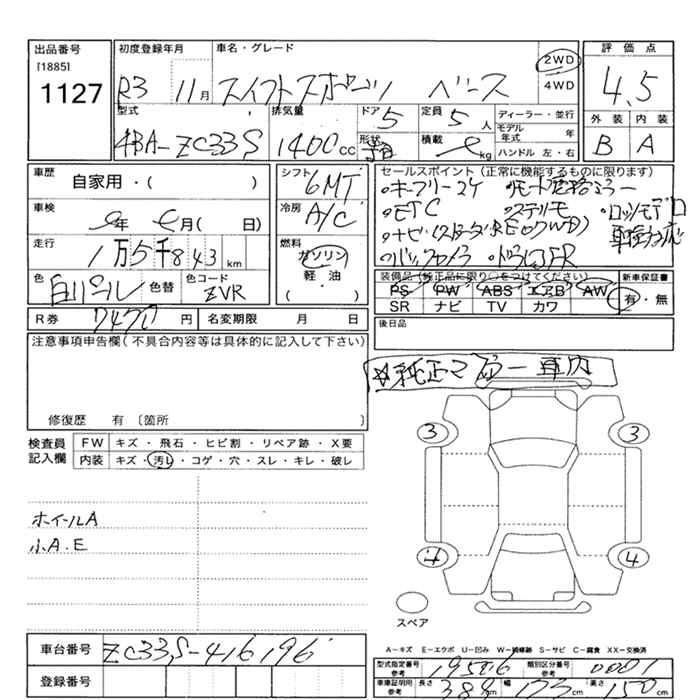 出品番号
[1885]
1127
初度登録年月
R3 11月
車名・グレード
スイフトスポーツ ベース
2WD
4WD
評価点
4.5
外装 内装
B A
型式
4BA-ZC33S
排気量
1400cc
ドア 5
形状
定員 5人
積載 kg
ディーラー・並行
モデル年式 年
ハンドル 左・右
車歴
自家用・( )
車検
年 月( 日)
走行
1万5千843km
色
白パール
色替
色コード
ZVR
シフト
6MT
冷房
A/C
燃料
ガソリン
軽・油
(・)
セールスポイント(正常に機能するものに限ります)
・キーフリー
・ETC ・ステリモ
・ナビ
・バックカメラ ・ドラレコFR
装備品(純正品に限り○をつけてください)
PS PW ABS エアB AW
SR ナビ TV カワ
新車保証書
有・無
後日品
R券 7470円
名変期限 月 日
注意事項申告欄(不具合内容等は具体的に記入して下さい)
修復歴 有〔箇所 〕
☆純正マフラー車内
検査員記入欄
FW キズ・飛石・ヒビ割・リペア跡・X要
内装 キズ・汚レ・コゲ・穴・スレ・キレ・破レ
ホイールA
小A.E
3
3
4
4
スペア
車台番号 ZC33S-416196
登録番号
A-キズ E-エクボ U-凹み W-補修跡 S-サビ C-腐食 XX-交換済
型式指定番号 参考 19506
類別区分番号 参考 0001
車庫証明用 参考
長さ 389cm
幅 173cm
高さ 150cm